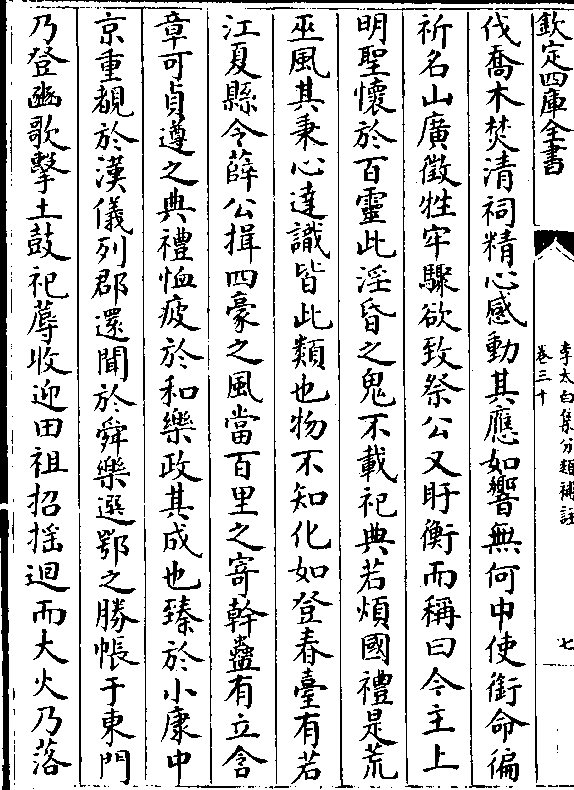 欽定四庫全書
李太白集分類補註
卷三十
七
伐喬木焚清祠精心感動其應如響無何中使銜命徧
祈名山廣徵牲牢驟欲致祭公又盱衡而稱曰今主上
明聖懷於百靈此淫昏之鬼不載祀典若煩國禮是荒
巫風其秉心達識皆此類也物不知化如登春臺有若
江夏縣令薛公揖四豪之風當百里之寄幹蠱有立含
章可貞遵之典禮恤疲於和樂政其成也臻於小康中
京重覩於漢儀列郡還聞於舜樂選鄂之勝帳于東門
乃登豳歌擊土鼓祀蓐收迎田祖招摇迴而大火乃落